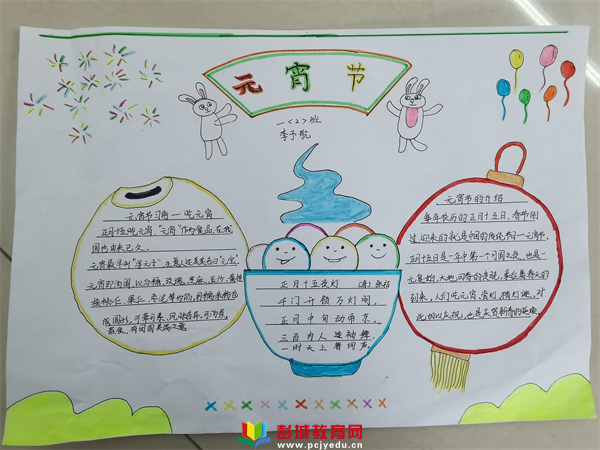 元宵节
一<2>班
李予航
元宵节习俗一吃元宵
正月十五吃元宵,“元宵”作为食品,在我
国也由来已久。
元宵即汤圆,以白糖、玫瑰、芝麻、豆沙、黄桂
核桃仁、果仁、枣泥等为馅,用糯米粉包
成圆形,可荤可素,风味各异,可汤煮、
有团圆美满之意
正月十五夜灯 (唐)张祜
千门开锁万灯明,
正月中旬动帝京。
三百内人连袖舞,
一时天上著词声。
元宵节的介绍
每年农历的正月十五日,春节刚
过,迎来的就是中国的传统节日一元宵节。
正月十五日是一年中第一个月圆之夜,也是一
元复始,大地回春的夜晚,
到来,人们吃元宵、赏灯、猜灯谜,对
此加以庆祝,也是庆贺新春的延续。
彭城教育网
www.pcjyedu.cn